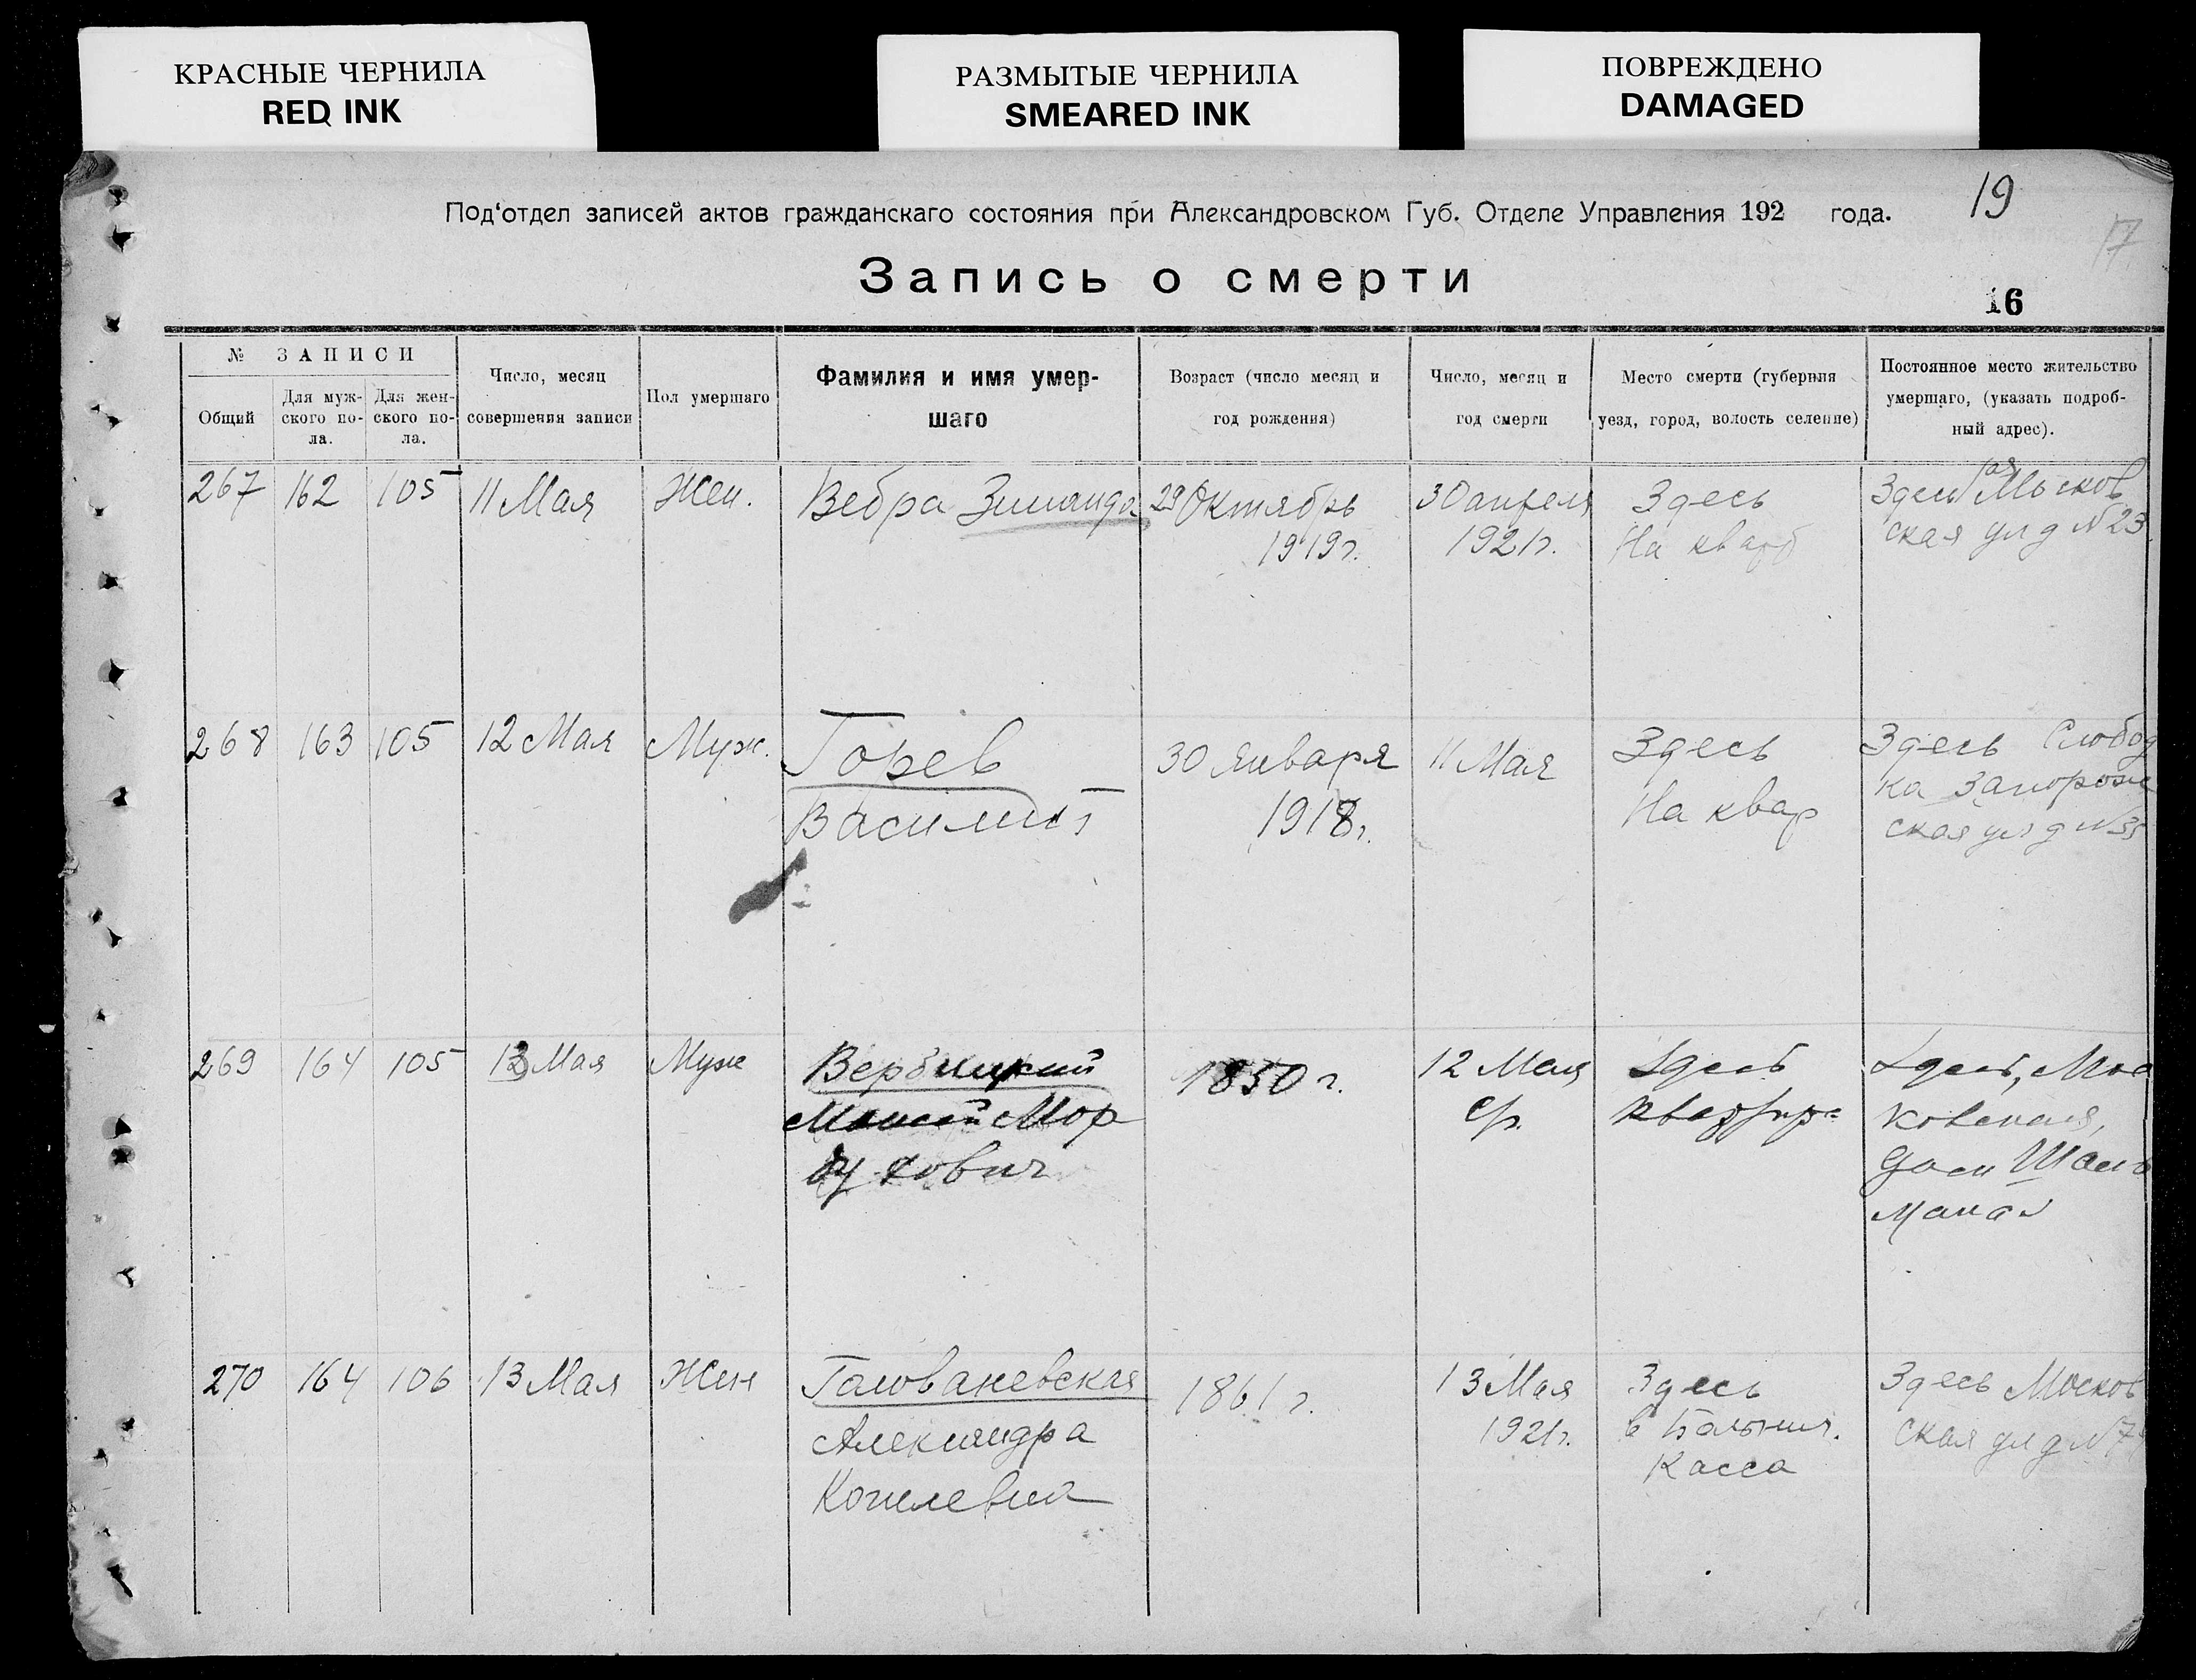 КРАСНЫЕ ЧЕРНИЛА
RED INK
РАЗМЫТЫЕ ЧЕРНИЛА
SMEARED INK
ПОВРЕЖДЕНО
DAMAGED
19
Под‘отдел записей актов гражданскаго состояния при Александровском Губ. Отделе Управления 192 года.
17
Запись о смерти
16
№ ЗАПИСИ
Общий
Для муж-
ского по-
ла.
Для жен-
ского по-
ла.
Число, месяц
совершения записи
Пол умершаго
Фамилия и имя умер-
шаго
Возраст (число месяц и
год рождения)
Число, месяц и
год смерти
Место смерти (губерния
уезд, город, волость селение)
Постоянное место жительство
умершаго, (указать подроб-
ный адрес).
267 162 105 11 Мая Жен.
Вебра Зинаида
29 Октябрь
1919 г.
30 апреля
1921 г.
Здесь
На кварт
Здесь Москов
ская ул д № 23
268 163 105 12 Мая Муж.
Горев
Василий
30 Января
1918 г.
11 Мая
Здесь
На квар
Здесь Слобод
ка Запорож
ская ул д № 35
269 164 105 13 Мая Муж
Вербицкий
Моисей Мор
духович
1850 г.
12 Мая
Здесь
квартира
Здесь, Мос
ковская,
дом
270 164 106 13 Мая Жен
Голованевская
Александра
1861 г.
13 Мая
1921 г.
Здесь
в Больнич.
Касса
Здесь Москов
ская ул д № 7